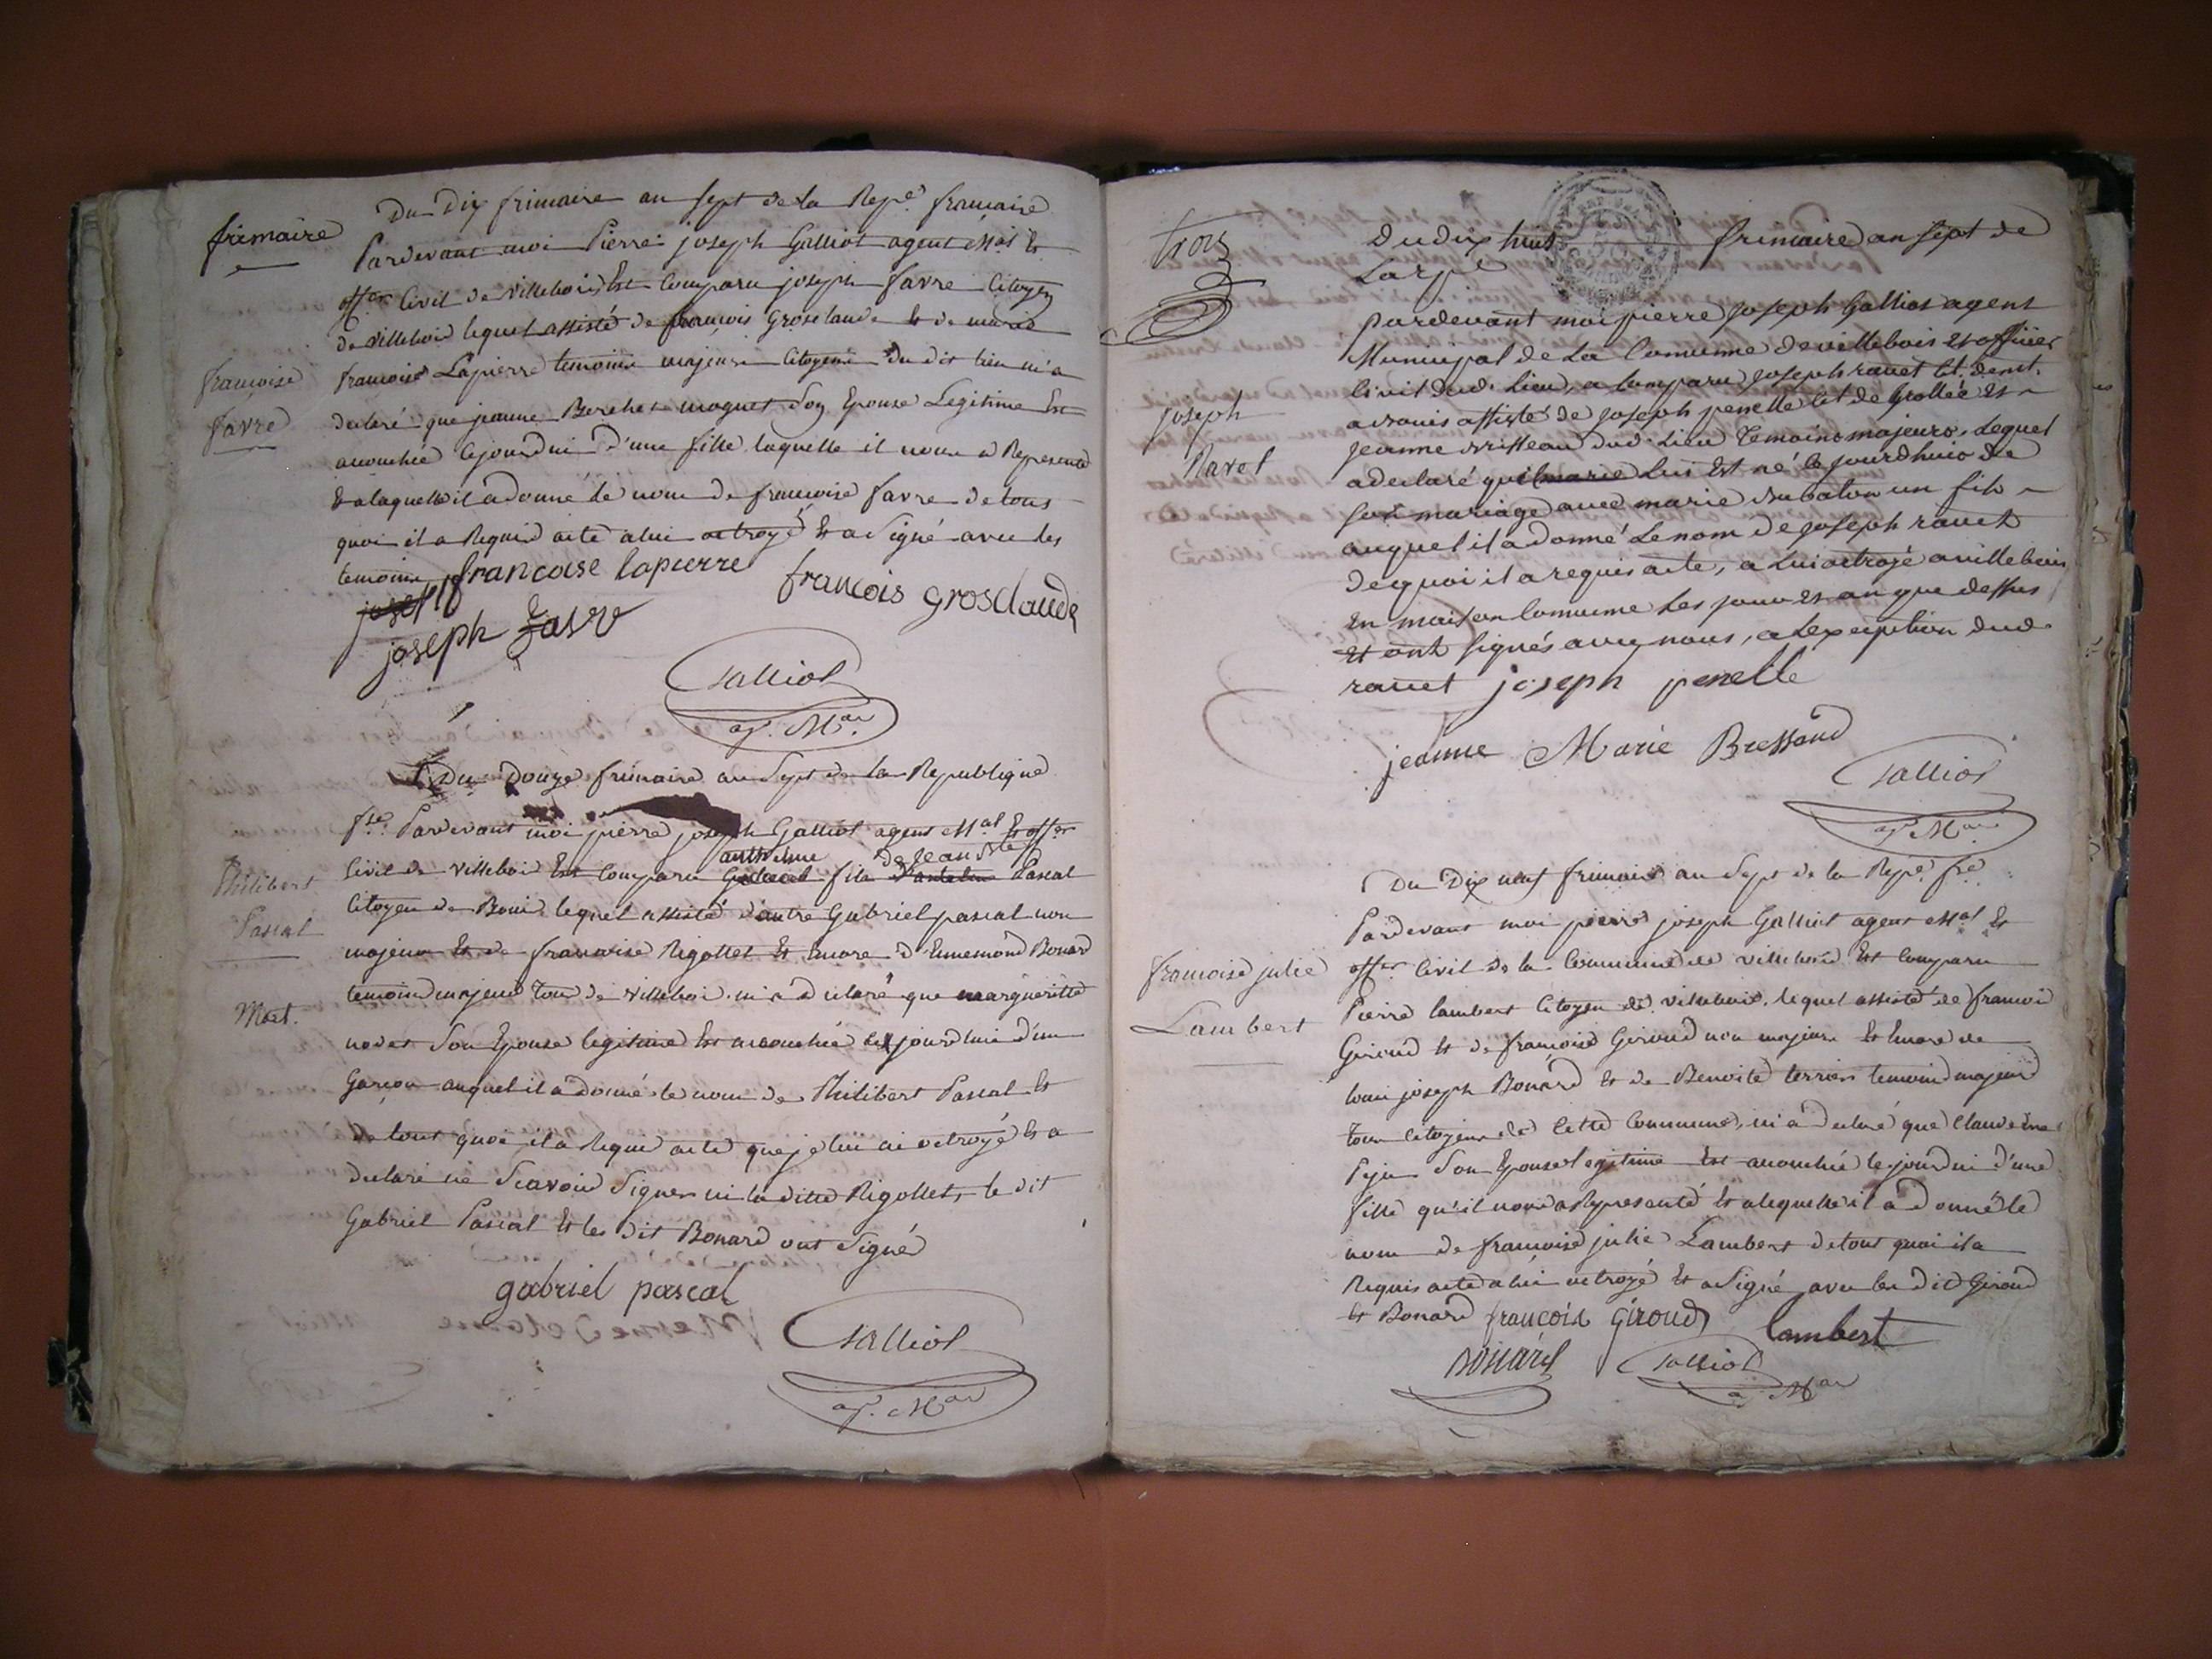 frimaire
Du Dix frimaire an sept de la Repe. francaise
Pardevant moi Pierre joseph Galliot agent Mal. Et
offer Civil de Villebois Est Comparu joseph favre Citoyen
de Villebois lequel assisté de francois Groselaude Et de marie
francoise
favre
francoise Lapierre temoins majeurs Citoyens du dit lieu m'a
declaré que jeanne Berchet moquet son Epouse Legitime Est
acouchée cejourdui d'une fille laquelle il nous a Representé
Et alaquelle il a donné le nom de francoise favre de tous
quoi il a Requis acte a lui octroyé Et a Signé avec les
temoins francoise lapierre
josep
francois grosclaude
joseph favre
Galliot
ag. Mal
Du Douze frimaire an Sept de la Republique
fse. Pardevant moi pierre joseph Galliot agent Mal Et offer
anthelme de jean Bte
Philibert
Pascal
Civil de Villebois Est Comparu Gabriel fils Pascal
Citoyen de Boui lequel assisté d'autre Gabriel pascal non
majeur Et de francoise Rigollet Et encore d'Ennemond Bonard
Mort.
temoins majeurs tous de Villebois m'a declaré que margueritte
nodet Son Epouse legitime Est acouchée cejourdhui d'un
Garçon auquel il a donné le nom de Philibert Pascal Et
de tout quoi il a Requi acte que je lui ai octroyé Et a
declaré ne Scavoir Signer ni la ditte Rigollet, le dit
Gabriel Pascal Et les dit Bonard ont Signé
gabriel pascal
Galliot
ag. Mal
trois
Du dix huit frimaire an sept de
La rpe
pardevant moi pierre joseph Galliot agent
Municipal de La Comunne de villebois et officier
joseph
Ravet
Civil dud. Lieu, a Comparu joseph ravet Cit. demt.
assisté de joseph penelle Cit de Grollée Et
jeanne dud. Lieu Temoins majeurs, Lequel
a declaré qu'il marie Lui Est né Cejourdhuis de
son mariage avec marie un fils
auquel il a donné Le nom de joseph ravet
de quoi il a requis acte, a Lui octroyé a villebois
En maison Comunne Les jour et an que dessus
et ont signés avec nous, a Lexception dud.
ravet joseph penelle
jeanne Marie Bressand
Galliot
ag. Mal
Du Dix neuf frimaire an Sept de la Repe. fse
Pardevant moi pierre joseph Galliot agent Mal Et
francoise julie
Lambert
offer Civil de la Commune de Villebois Est Comparu
Pierre lambert Citoyen de Villebois. lequel assisté de francoi
Giroud Et de francoise Giroud non majeurs Et encore de
Loui joseph Bonard Et de Benoite terrier temoins majeurs
tous Citoyens de Cette Commune, m'a declaré que Claudeine
Peju Son Epouse legitime Est acouchée cejourdui d'une
fille qu'il nous a Representé Et alequelle il a donné le
nom de francoise julie Lambert de tout quoi il a
Requis acte a lui octroyé Et a Signé avec les dit Giroud
Et Bonard francois Giroud lambert
Bonard Galliot
a. Mal